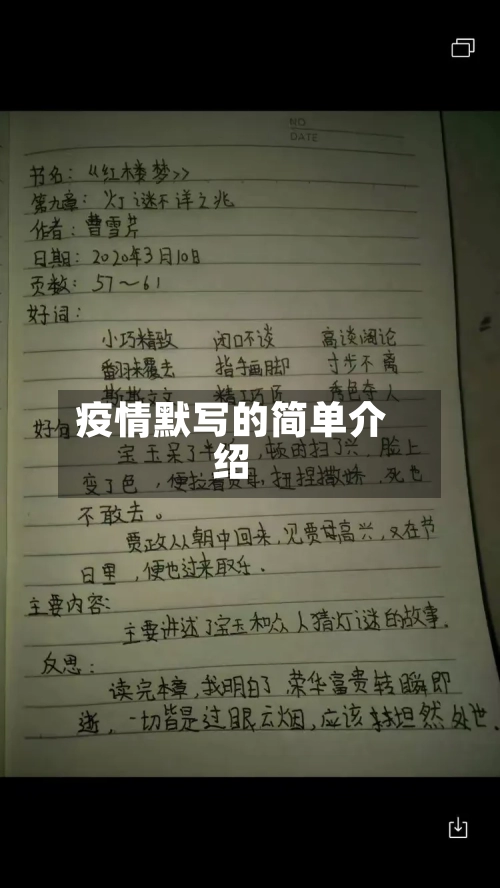 NO.
DATE
书名：《红楼梦》
第九章：灯谜不详之兆
作者：曹雪芹
日期：2020年3月10日
页数：57～61
好词：
小巧精致 闭口不谈 高谈阔论
翻来覆去 指手画脚 寸步不离
斯斯文文 精工巧 秀色夺人
疫情默写的简单介
绍
好句
宝玉呆了半，顿时扫了兴，脸上
变了色，便拉着贾母，扭捏撒娇，死也
不敢去。
贾政从朝中回来，见贾母高兴，又在节
日里，便也过来取乐．
主要内容：
主要讲述了宝玉和众人猜灯谜的故事．
反思：
读完本章，我明白了，荣华富贵转瞬即
逝，一切皆是过眼云烟，应该坦然处世．